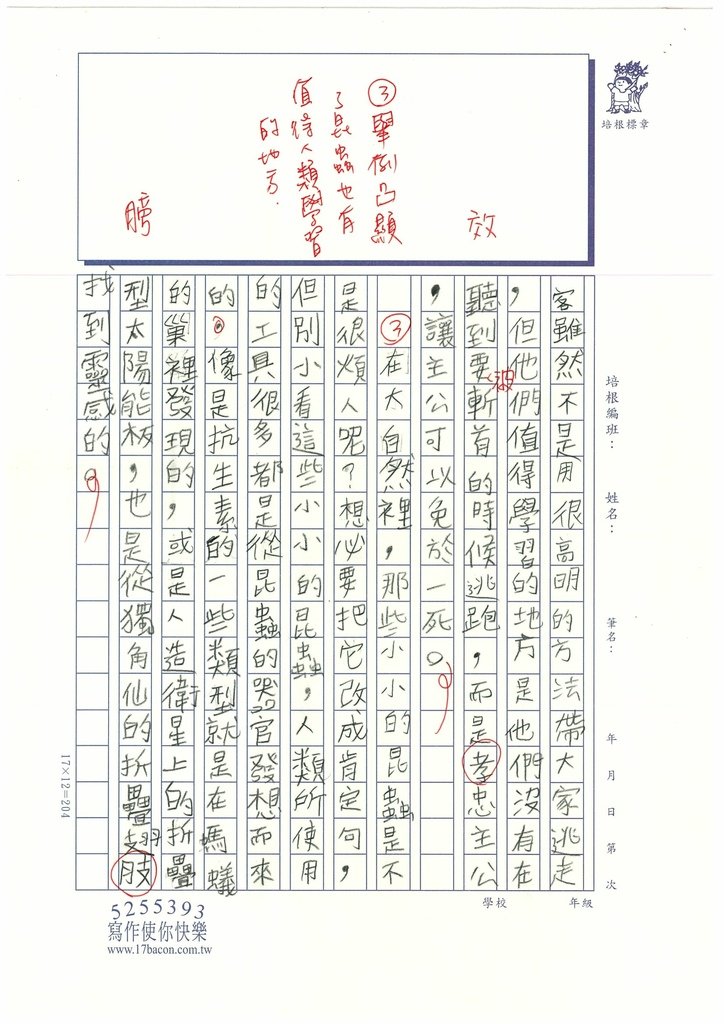 ③舉例凸顯
了昆蟲也有
值得人類學習
的地方.
效
膀
培根標章
培根編班：
姓名：
筆名：
年 月 日 第 次
學校
年級
客雖然不是用很高明的方法帶大家逃走
，但他們值得學習的地方是他們沒有在
聽到要斬首的時候逃跑，而是孝忠主公
被
，讓主公可以免於一死。
③在大自然裡，那些小小的昆蟲是不
是很煩人呢？想必要把它改成肯定句，
但別小看這些小小的昆蟲，人類所使用
的工具很多都是從昆蟲的器官發想而來
的。像是抗生素的一些類型就是在螞蟻
的巢裡發現的，或是人造衛星上的折疊
型太陽能板，也是從獨角仙的折疊翅肢
找到靈感的。
17×12=204
5255393
寫作使你快樂
www.17bacon.com.tw